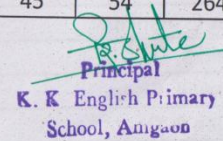 45 54 264
Principal
K. K English Primary
School, Amgaon